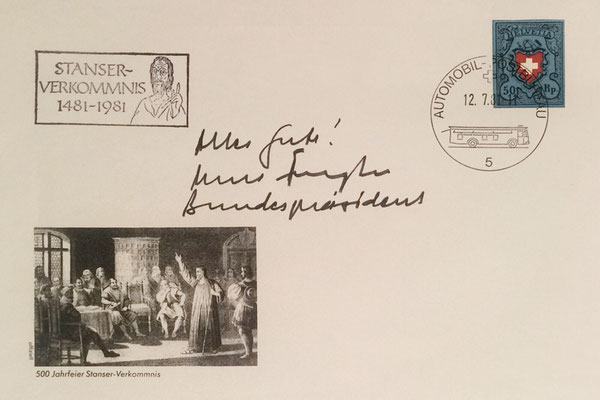 STANSER-
VERKOMMNIS
1481-1981
HELVETIA
50 Rp.
AUTOMOBIL-
12.7.8
5
Alles Gute!
Bundespräsident
500 Jahrfeier Stanser-Verkommnis